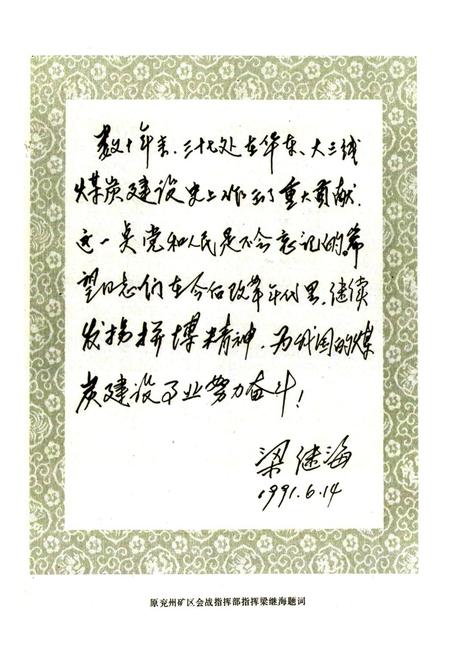 数十年来、三十七处在华东、大三线
煤炭建设史上作出了重大贡献.
这一点党和人民是不会忘记的。希
望同志们在今后改革年代里,继续
发扬拼搏精神,为我国的煤
炭建设事业努力奋斗!
梁继海
1991.6.14
原兖州矿区会战指挥部指挥梁继海题词